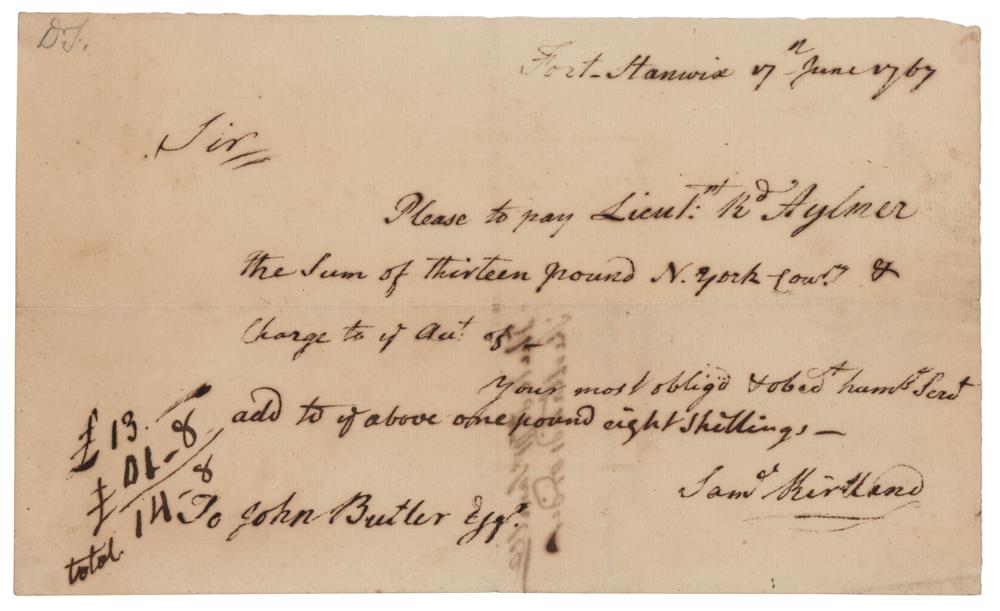 D.S.
Fort-Stanwix 17th June 1767
Sir
Please to pay Lieut:nt Rd Aylmer
the Sum of thirteen pound N. York Cour.y &
Charge to ye Acct of –
Your most oblig'd & obedt humble Servt
add to ye above one pound eight shillings –
Saml Kirtland
£ 13.
£ 01-8
total 14 8
To John Butler Esqr.